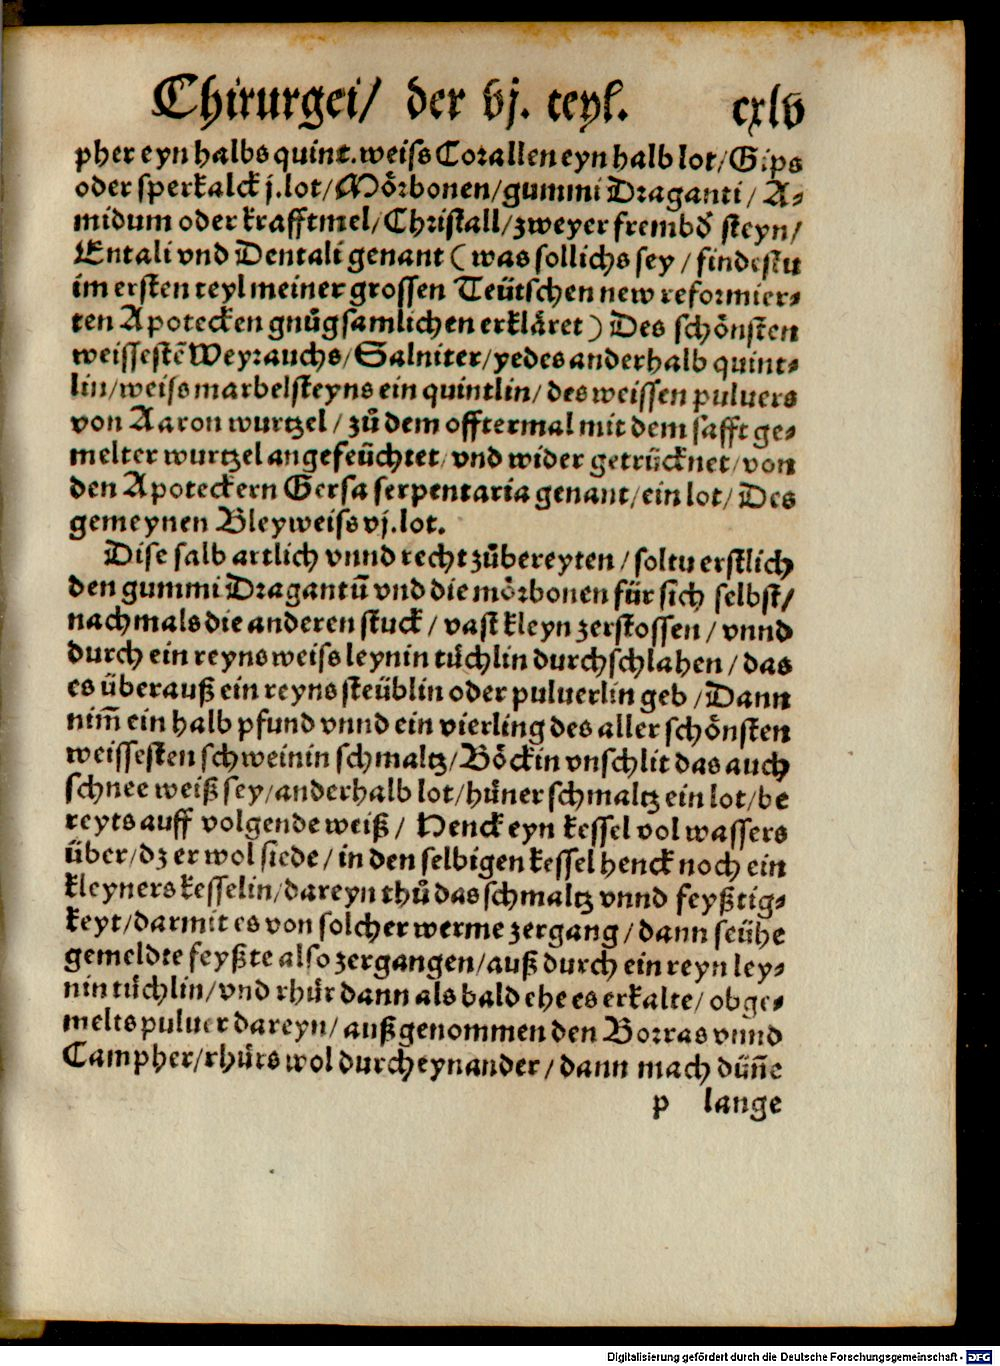 Chirurgei/ der vj. teyl. cxlv
pher eyn halbs quint. weiſs Corallen eyn halb lot/ Gips
oder ſperkalck j. lot/ Moͤrbonen/ gummi Draganti/ A⸗
midum oder krafftmel/ Chriſtall/ zweyer frembd̕ ſteyn/
Entali vnd Dentali genant (was ſollichs ſey/ findeſtu
im erſten teyl meiner groſſen Teütſchen new reformier⸗
ten Apotecken gnuͦgſamlichen erklaͤret) Des ſchoͤnſten
weiſſeſtẽ Weyrauchs/ Salniter/ yedes anderhalb quint⸗
lin/ weiſs marbelſteyns ein quintlin/ des weiſſen puluers
von Aaron wurtzel/ zuͦ dem offtermal mit dem ſafft ge⸗
melter wurtzel angefeüchtet/ vnd wider getrücknet/ von
den Apoteckern Gerſa ſerpentaria genant/ ein lot/ Des
gemeynen Bleyweiſs vj. lot.
Diſe ſalb artlich vnnd recht zuͦbereyten/ ſoltu erſtlich
den gummi Dragantũ vnd die moͤrbonen für ſich ſelbſt/
nachmals die anderen ſtuck/ vaſt kleyn zerſtoſſen/ vnnd
durch ein reyns weiſs leynin tuͤchlin durchſchlahen/ das
es überauß ein reyns ſteüblin oder puluerlin geb/ Dann
nim̃ ein halb pfund vnnd ein vierling des aller ſchoͤnſten
weiſſeſten ſchweinin ſchmaltz/ Boͤckin vnſchlit das auch
ſchnee weiß ſey/ anderhalb lot/ huͤner ſchmaltz ein lot/ be
reyts auff volgende weiß/ Henck eyn keſſel vol waſſers
über/ dz er wol ſiede/ in den ſelbigen keſſel henck noch ein
kleyners keſſelin/ dareyn thuͦ das ſchmaltz vnnd feyßtig⸗
keyt/ darmit es von ſolcher werme zergang/ dann ſeühe
gemeldte feyßte alſo zergangen/ auß durch ein reyn ley⸗
nin tuͤchlin/ vnd rhuͤr dann als bald ehe es erkalte/ obge⸗
melts puluer dareyn/ außgenommen den Borras vnnd
Campher/ rhuͤrs wol durcheynander/ dann mach dün̄e
p lange
Digitalisierung gefördert durch die Deutsche Forschungsgemeinschaft - DFG